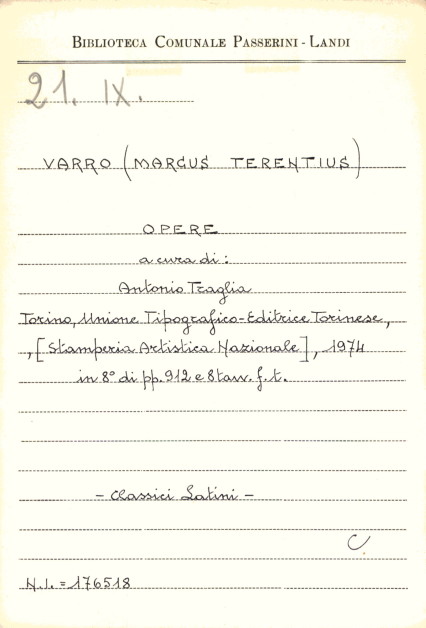 BIBLIOTECA COMUNALE PASSERINI - LANDI
21. IX.
VARRO (MARCUS TERENTIUS)
OPERE
a cura di :
Antonio Traglia
Torino, Unione Tipografico-Editrice Torinese,
, [Stamperia Artistica Nazionale], 1974
in 8° di pp. 912 e 8 tavv. f. t.
- Classici Latini -
C
N.I. = 176518